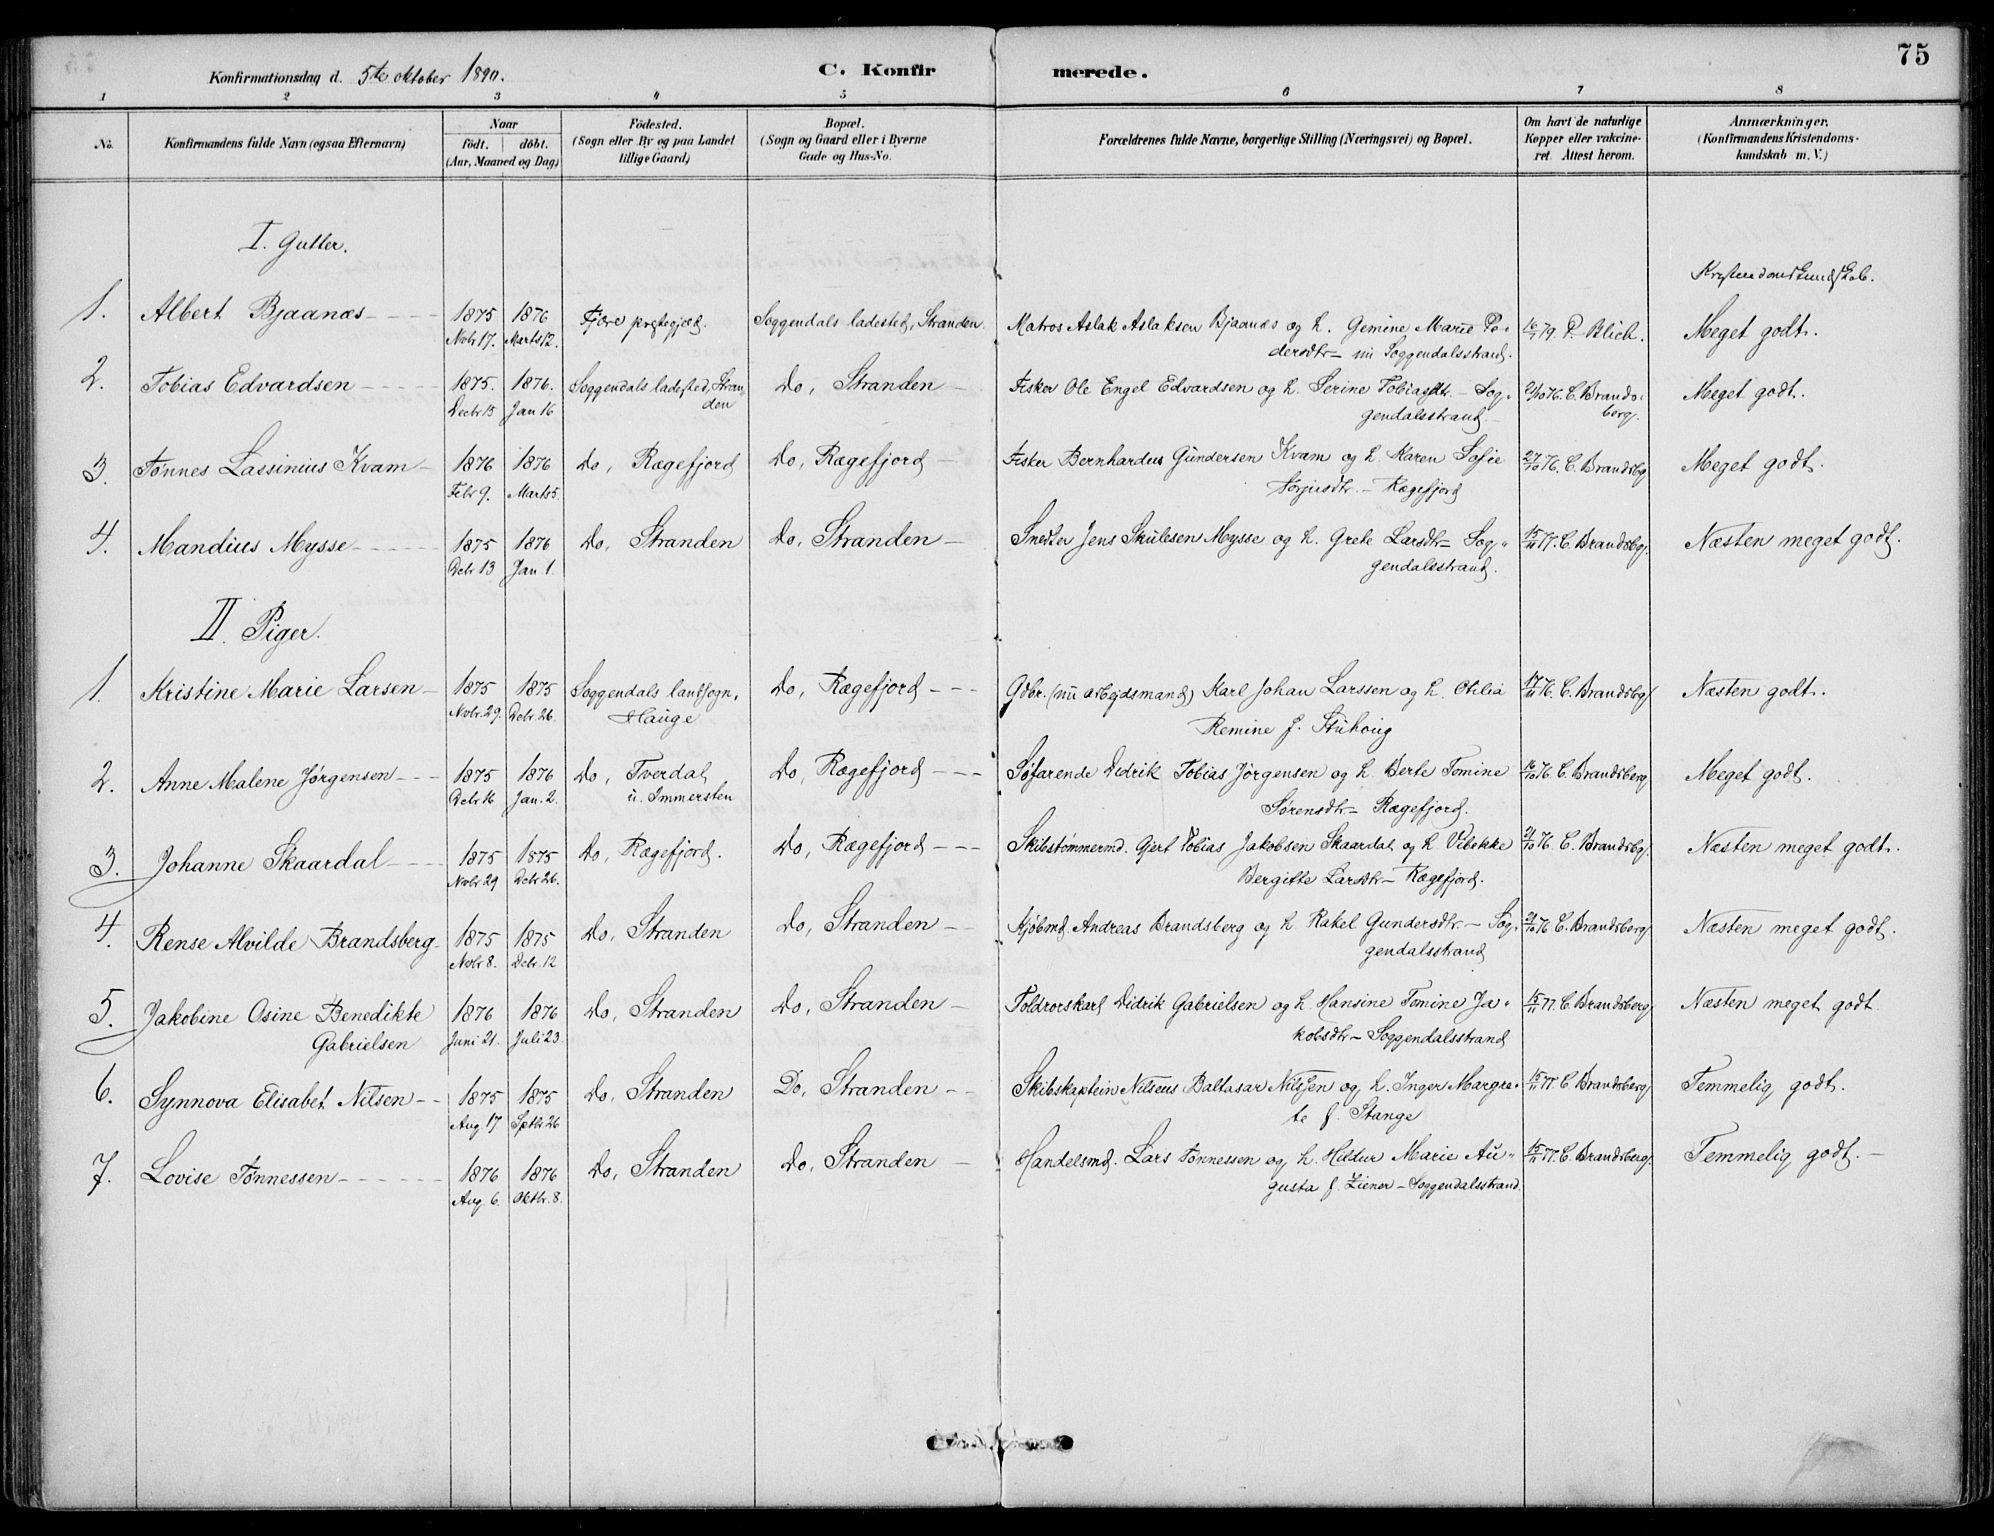 75
Konfirmationsdag d. 5te oktober 1890. C. Konfirmerede.
1 2 3 4 5 6 7 8
No. Konfirmandens fulde Navn (ogsaa Efternavn) Naar födt. döbt. (Aar, Maaned og Dag) Födested. (Sogn eller By og paa Landet tillige Gaard) Bopæl. (Sogn og Gaard eller i Byerne Gade og Hus-No. Forældrenes fulde Navne, borgerlige Stilling (Næringsvei) og Bopæl. Om havt de naturlige Kopper eller vakcineret. Attest herom. Anmærkninger. (Konfirmandens Kristendomskundskab m. V.)
I. Gutter.
Kristendomskundskab.
1. Albert Bjaanæs 1875 1876 Fjære prestegjæld. Soggendals ladested, Stranden. Matros Aslak Aslaksen Bjaanæs og h. Gemine Marie Pe- 79. P. Blich. Meget godt.
Novbr 17. Marts 12. dersdtr - nu Soggendalsstrand.
2. Tobias Edvardsen 1875. 1876. Soggendals ladested, Stran- Do, Stranden Fisker Ole Engel Edvardsen og h. Serine Tobiasdtr. - Sog- 21/10 76. C. Brands- Meget godt.
Decbr 15 Jan 16 den gendalsstrand berg.
3. Tønnes Lassinius Kvam 1876 1876 Do, Rægefjord Do, Rægefjord Fisker Bernhardus Gundersen Kvam og h. Karen Sofie 27/10 76. C. Brandsbg Meget godt.
Febr 9. Marts 5. Torjusdtr. - Rægefjord
4. Mandius Mysse 1875 1876 Do, Stranden Do, Stranden Snedker Jens Skulesen Mysse og h. Grete Larsdtr - Sog- 15/11 77. C. Brandsbg. Næsten meget godt.
Debr 13 Jan. 1. gendalsstrand.
II. Piger.
1. Kristine Marie Larsen 1875 1875 Soggendals landsogn, Do, Rægefjord Gdbr. (nu arbeidsmand) Karl Johan Larssen og h. Otilia 17/11 76. C. Brandsbg Næsten godt.
Novbr. 29. Debr. 26. Hauge Remine f. Stuhoug
2. Anne Malene Jørgensen 1875 1876 Do, Tverdal Do, Rægefjord Søfarende Didrik Tobias Jørgensen og h. Berte Tomine 16/10 76. C. Brandsberg Meget godt.
Debr 16 Jan. 2. u. Immersten Sørensdtr - Rægefjord.
3. Johanne Skaardal 1875 1875 Do, Rægefjord. Do, Rægefjord Skibstømmermd. Gjert Tobias Jakobsen Skaardal og h Vibekke 21/10 76. C. Brandsbg. Næsten meget godt.
Novbr 29 Debr 26. Bergitte Larsdtr - Rægefjord.
4. Rense Alvilde Brandsberg 1875 1875 Do, Stranden Do, Stranden Kjøbmd. Andreas Brandsberg og h Rakel Gundersdtr. - Sog- 21/10 76 C. Brandsberg Næsten meget godt.
Novbr 8. Debr. 12 gendalsstrand
5. Jakobine Osine Benedikte 1876 1876 Do, Stranden Do, Stranden Toldrorskarl Didrik Gabrielsen og h Hansine Tomine Ja- 15/11 77. C. Brandsberg Næsten meget godt.
Gabrielsen Juni 21. Juli 23. kobsdtr - Soggendalsstrand
6. Synnova Elisabet Nilsen 1875 1875 Do, Stranden Do, Stranden Skibskaptein Nilseus Baltasar Nilssen og h. Inger Margre- 15/11 77. C Brandsberg Temmelig godt.
Aug 17 Septbr 26 te f. Stange
7. Lovise Tønnessen 1876 1876 Do, Stranden Do, Stranden Handelsmd. Lars Tønnessen og h. Hildur Marie Au- 15/11 77. C. Brandsberg. Temmelig godt.
Aug 6. Oktbr. 8. gusta f. Ziener - Soggendalsstrand.